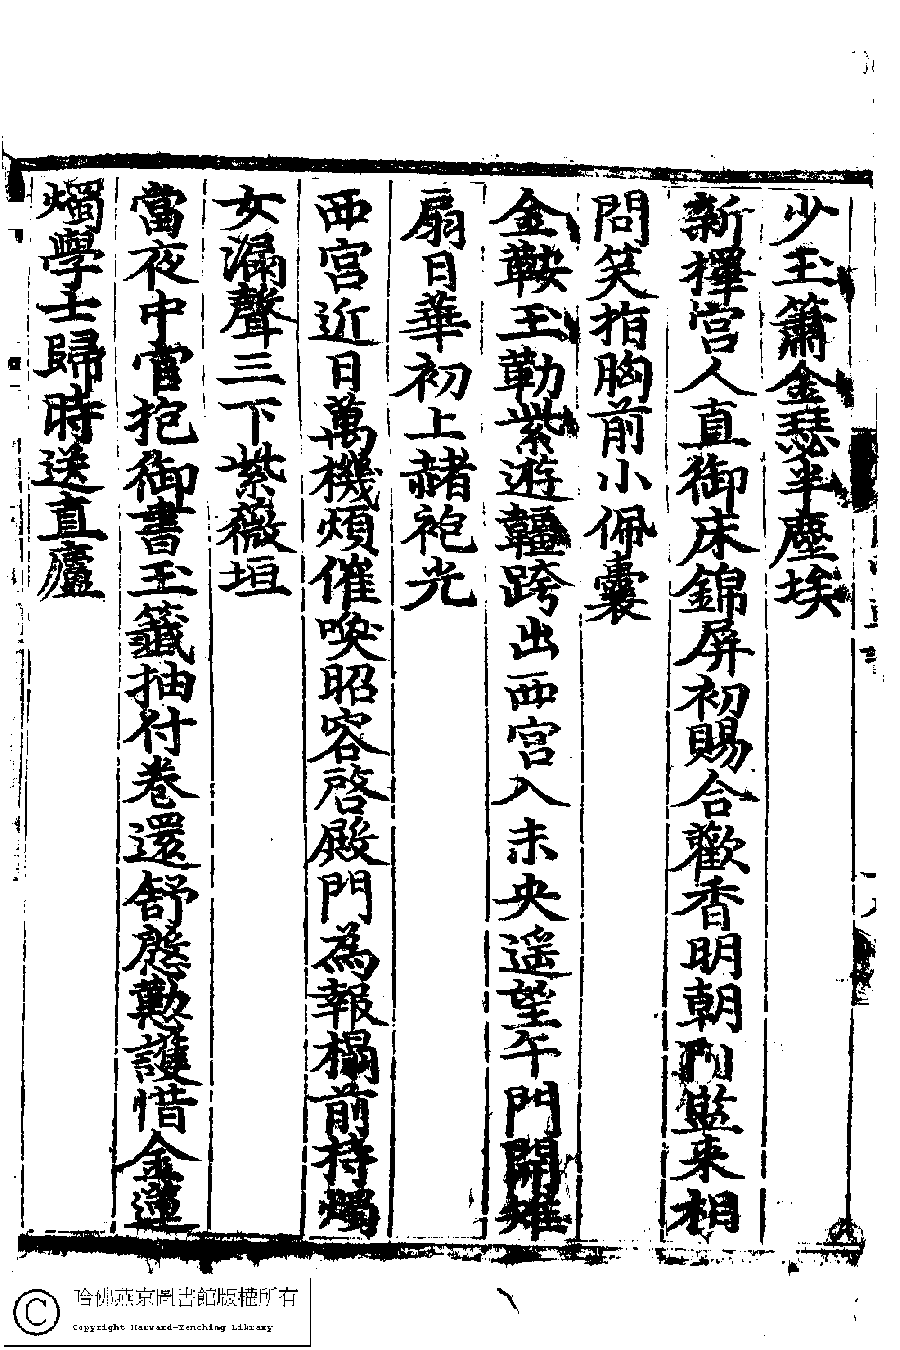 少玉簫金瑟半塵埃
新擇宮人直御床錦屏初賜合歡香明朝門監來相
問笑指胸前小佩囊
金鞍玉勒紫遊韁跨出西宮入未央遥望午門開雉
扇日華初上赭袍光
西宮近日萬機煩催喚昭容啓殿門為報榻前持燭
女漏聲三下紫薇垣
當夜中官抱御書玉籤抽付卷還舒慇懃護惜金蓮
燭學士歸時送直廬
哈佛燕京圖書館版權所有
Copyright Harvard-Yenching Library